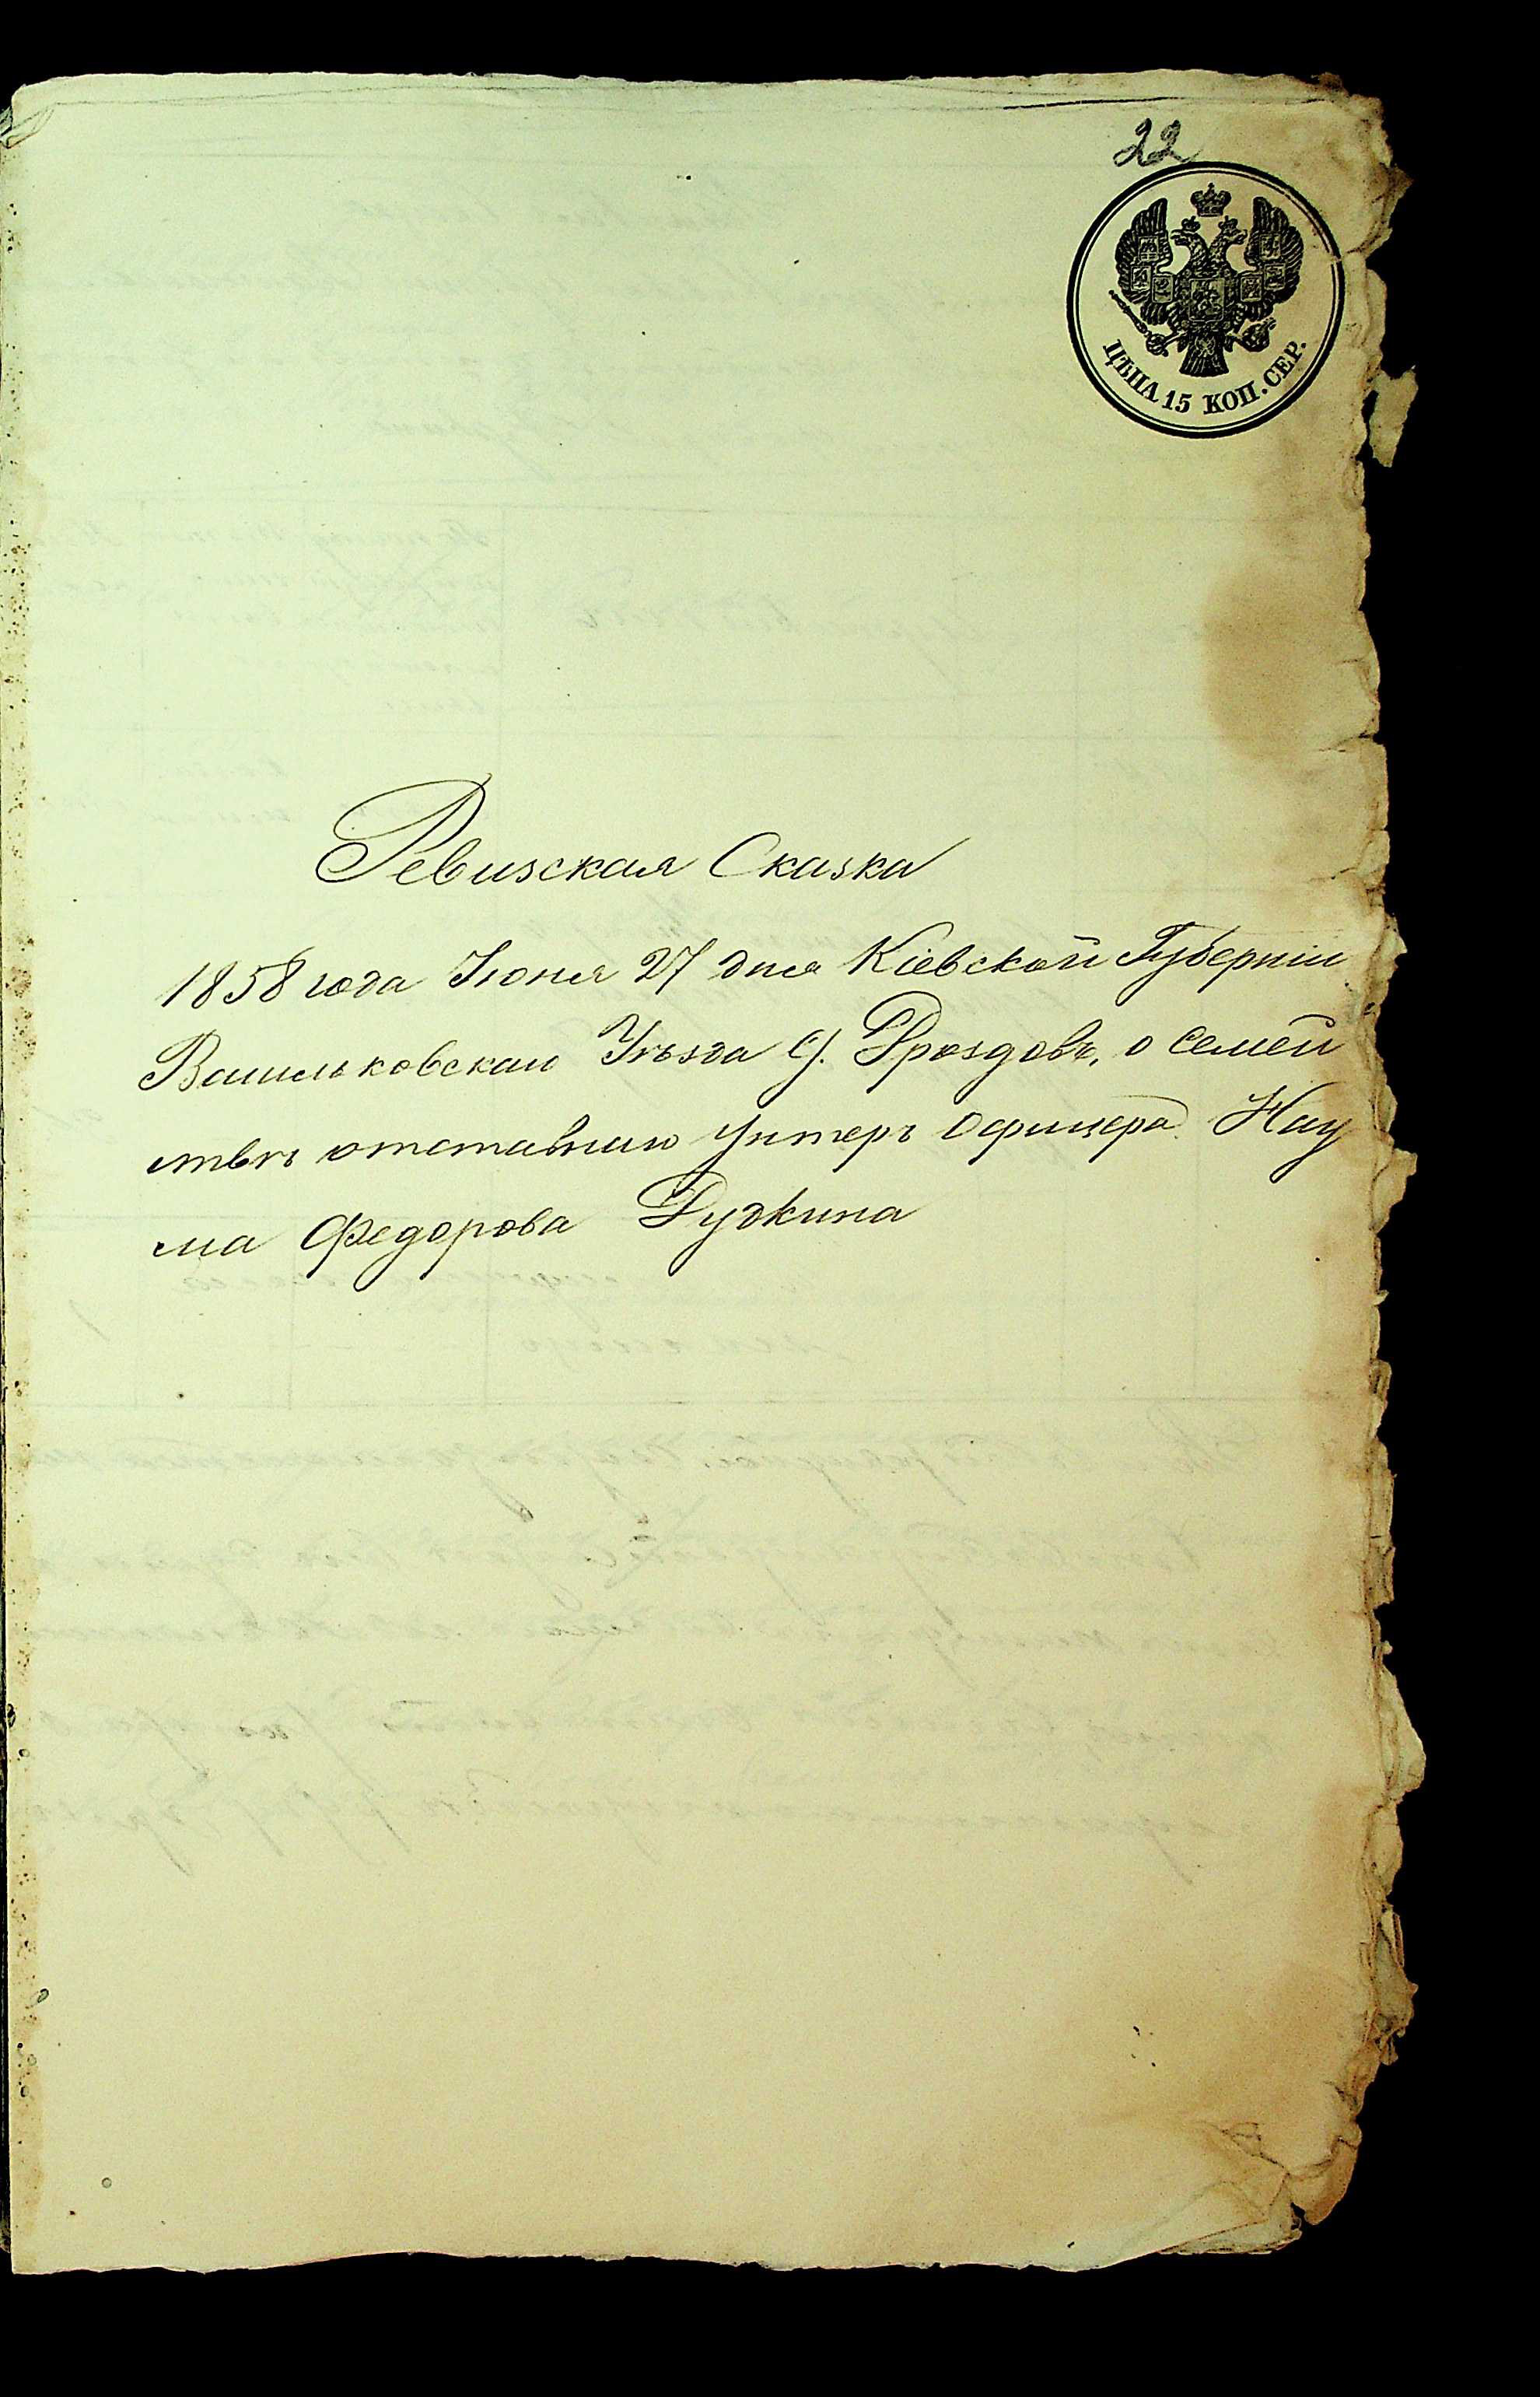 22
ЦѢНА 15 КОП. СЕР.
Ревизская Сказка
1858 года Іюня 27 дня Кіевской Губерніи
Васильковскаго Уѣзда С. Дроздовъ, о Семей
ствѣ отставнаго Унтеръ Офицера Нау
ма Федорова Дудкина